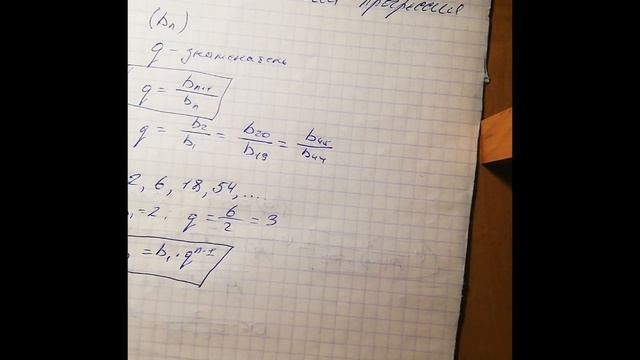 прогрессия
(bn)
q - знаменатель
q = bn+1/bn
q = b2/b1 = b20/b19 = b45/b44
2, 6, 18, 54, ....
=2; q = 6/2 = 3
= b1 · q^n-1